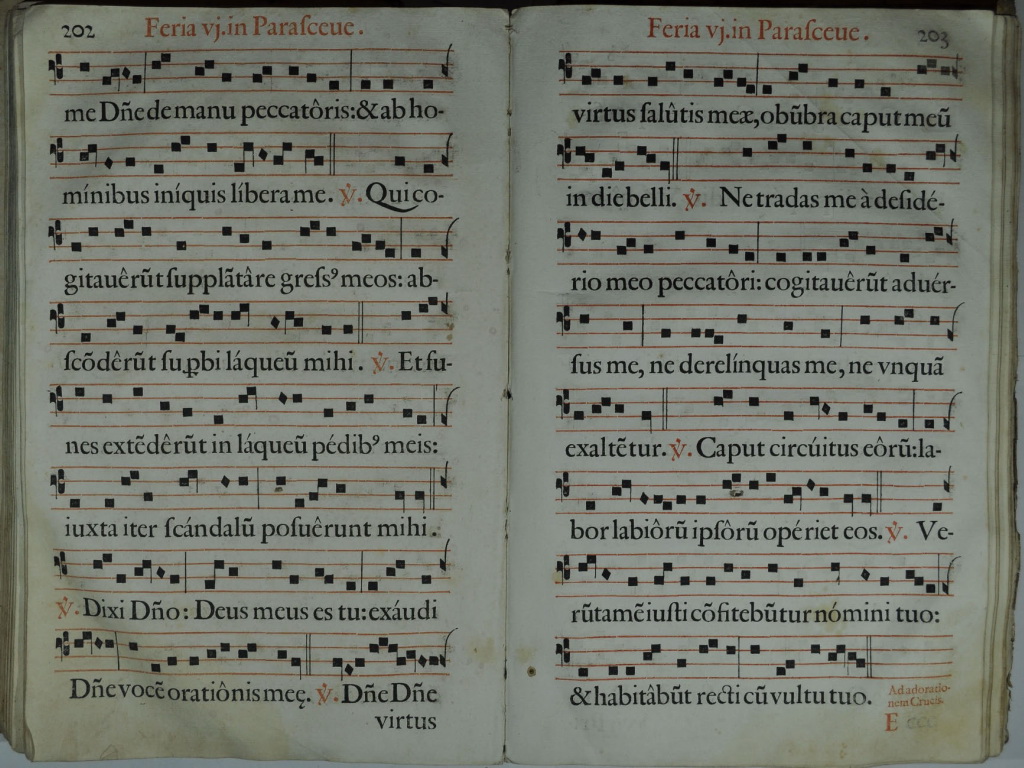 202
Feria vj. in Paraſceue.
me Dñe de manu peccatôris: & ab ho-
mínibus iníquis líbera me. ℣. Qui co-
gitauêrũt ſupplãtâre greſsꝰ meos: ab-
ſcõdêrũt ſuꝑbi láqueũ mihi. ℣. Et fu-
nes extẽdêrũt in láqueũ pédibꝰ meis:
iuxta iter ſcándalũ poſuêrunt mihi.
℣. Dixi Dño: Deus meus es tu: exáudi
Dñe vocẽ oratiônis meę. ℣. Dñe Dñe
virtus
Feria vj. in Paraſceue.
203
virtus ſalûtis meæ, obũbra caput meũ
in die belli. ℣. Ne tradas me à deſidé-
rio meo peccatôri: cogitauêrũt aduér-
ſus me, ne derelínquas me, ne vnquã
exaltẽtur. ℣. Caput circúitus eôrũ: la-
bor labiôrũ ipſôrũ opériet eos. ℣. Ve-
rũtamẽ iuſti cõfitebũtur nómini tuo:
& habitâbũt recti cũ vultu tuo.
Ad adoratio-
nem Crucis.
E